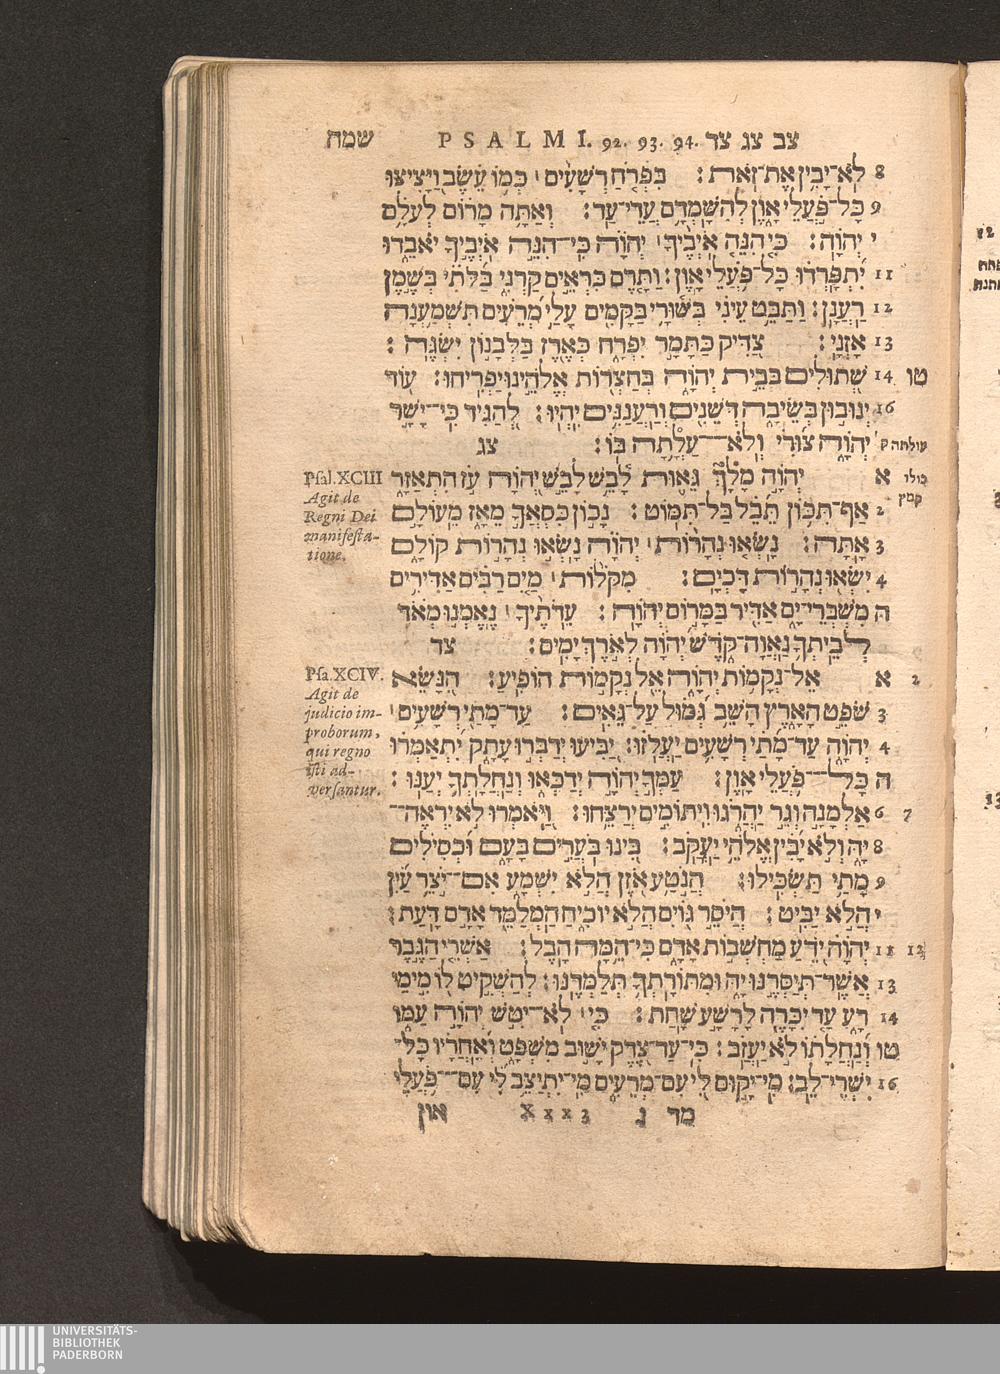 שמח PSALMI. 92. 93. 94. צב צג צד
8 לֹא־יָבִין אֶת־זֹאת׃ בִּפְרֹחַ רְשָׁעִים ׀ כְּמוֹ עֵשֶׂב וַיָּצִיצוּ
9 כָּל־פֹּעֲלֵי אָוֶן לְהִשָּׁמְדָם עֲדֵי־עַד׃ וְאַתָּה מָרוֹם לְעֹלָם
י יְהוָה׃ כִּי הִנֵּה אֹיְבֶיךָ ׀ יְהוָה כִּי־הִנֵּה אֹיְבֶיךָ יֹאבֵדוּ
11 יִתְפָּרְדוּ כָּל־פֹּעֲלֵי אָוֶן׃ וַתָּרֶם כִּרְאֵים קַרְנִי בַּלֹּתִי בְּשֶׁמֶן
12 רַעֲנָן׃ וַתַּבֵּט עֵינִי בְּשׁוּרָי בַּקָּמִים עָלַי מְרֵעִים תִּשְׁמַעְנָה
13 אָזְנָי׃ צַדִּיק כַּתָּמָר יִפְרָח כְּאֶרֶז בַּלְּבָנוֹן יִשְׂגֶּה׃
14 טו שְׁתוּלִים בְּבֵית יְהוָה בְּחַצְרוֹת אֱלֹהֵינוּ יַפְרִיחוּ׃ עוֹד
16 יְנוּבוּן בְּשֵׂיבָה דְּשֵׁנִים וְרַעֲנַנִּים יִהְיוּ׃ לְהַגִּיד כִּי־יָשָׁר
עולתה ק יְהוָה צוּרִי וְלֹא־עַלָתָה בּוֹ׃ צג
א יְהוָה מָלָךְ גֵּאוּת לָבֵשׁ לָבֵשׁ יְהוָה עֹז הִתְאַזָּר
כולי
קמץ
Psal. XCIII
Agit de
Regni Dei
manifesta-
tione.
2 אַף־תִּכּוֹן תֵּבֵל בַּל־תִּמּוֹט׃ נָכוֹן כִּסְאֲךָ מֵאָז מֵעוֹלָם
3 אָתָּה׃ נָשְׂאוּ נְהָרוֹת ׀ יְהוָה נָשְׂאוּ נְהָרוֹת קוֹלָם
4 יִשְׂאוּ נְהָרוֹת דָּכְיָם׃ מִקֹּלוֹת ׀ מַיִם רַבִּים אַדִּירִים
ה מִשְׁבְּרֵי־יָם אַדִּיר בַּמָּרוֹם יְהוָה׃ עֵדֹתֶיךָ ׀ נֶאֶמְנוּ מְאֹד
לְבֵיתְךָ נַאֲוָה־קֹדֶשׁ יְהוָה לְאֹרֶךְ יָמִים׃ צד
א 2 אֵל־נְקָמוֹת יְהוָה אֵל נְקָמוֹת הוֹפִיעַ׃ הִנָּשֵׂא
Psa. XCIV.
Agit de
judicio im-
proborum,
qui regno
isti ad-
versantur.
3 שֹׁפֵט הָאָרֶץ הָשֵׁב גְּמוּל עַל־גֵּאִים׃ עַד־מָתַי רְשָׁעִים ׀
4 יְהוָה עַד־מָתַי רְשָׁעִים יַעֲלֹזוּ׃ יַבִּיעוּ יְדַבְּרוּ עָתָק יִתְאַמְּרוּ
ה כָּל־פֹּעֲלֵי אָוֶן׃ עַמְּךָ יְהוָה יְדַכְּאוּ וְנַחֲלָתְךָ יְעַנּוּ׃
6 7 אַלְמָנָה וְגֵר יַהֲרֹגוּ וִיתוֹמִים יְרַצֵּחוּ׃ וַיֹּאמְרוּ לֹא יִרְאֶה־
8 יָּהּ וְלֹא־יָבִין אֱלֹהֵי יַעֲקֹב׃ בִּינוּ בֹּעֲרִים בָּעָם וּכְסִילִים
9 מָתַי תַּשְׂכִּילוּ׃ הֲנֹטַע אֹזֶן הֲלֹא יִשְׁמָע אִם־יֹצֵר עַיִן
י הֲלֹא יַבִּיט׃ הֲיֹסֵר גּוֹיִם הֲלֹא יוֹכִיחַ הַמְלַמֵּד אָדָם דָּעַת׃
11 12 יְהוָה יֹדֵעַ מַחְשְׁבוֹת אָדָם כִּי־הֵמָּה הָבֶל׃ אַשְׁרֵי הַגֶּבֶר
13 אֲשֶׁר־תְּיַסְּרֶנּוּ יָּהּ וּמִתּוֹרָתְךָ תְלַמְּדֶנּוּ׃ לְהַשְׁקִיט לוֹ מִימֵי
14 רָע עַד יִכָּרֶה לָרָשָׁע שָׁחַת׃ כִּי ׀ לֹא־יִטֹּשׁ יְהוָה עַמּוֹ
טו וְנַחֲלָתוֹ לֹא יַעֲזֹב׃ כִּי־עַד־צֶדֶק יָשׁוּב מִשְׁפָּט וְאַחֲרָיו כָּל־
16 יִשְׁרֵי־לֵב׃ מִי־יָקוּם לִי עִם־מְרֵעִים מִי־יִתְיַצֵּב לִי עִם־פֹּעֲלֵי
מד נ Xxx3 און
UNIVERSITÄTS-
BIBLIOTHEK
PADERBORN